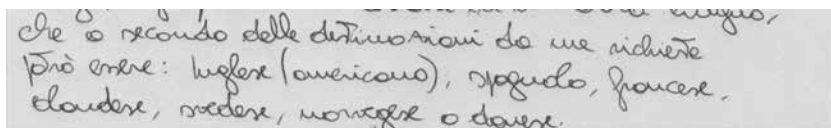 che a secondo delle destinazioni da me richieste
può essere: Inglese (americano), spagnolo, francese,
olandese, svedese, norvegese o danese.